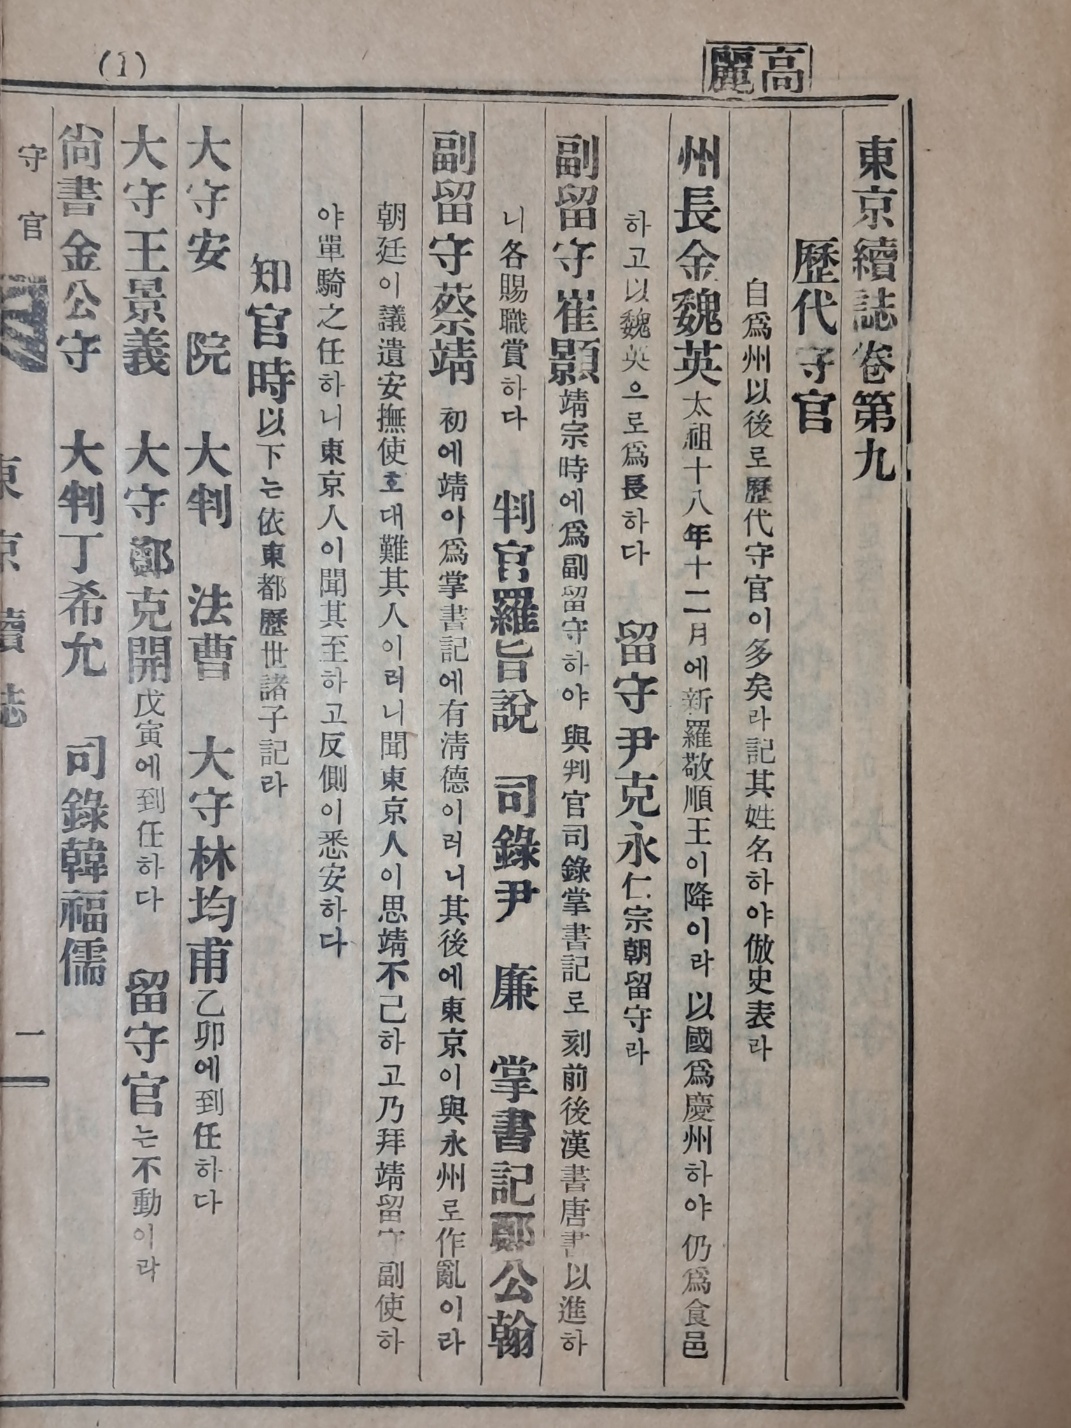 (1)
高麗
東京續誌卷第九
歷代守官
自爲州以後로歷代守官이多矣라記其姓名하야倣史表라
州長金魏英太祖十八年十二月에新羅敬順王이降이라以國爲慶州하야仍爲食邑
하고以魏英으로爲長하다 留守尹克永仁宗朝留守라
副留守崔顥靖宗時에爲副留守하야與判官司錄掌書記로刻前後漢書唐書以進하
니各賜職賞하다 判官羅旨說 司錄尹 廉 掌書記鄭公翰
副留守蔡靖初에靖아爲掌書記에有淸德이러니其後에東京이與永州로作亂이라
朝廷이議遺安撫使호대難其人이러니聞東京人이思靖不己하고乃拜靖留守副使하
야單騎之任하니東京人이聞其至하고反側이悉安하다
知官時以下는依東都歷世諸子記라
大守安 院 大判 法曹 大守林均甫乙卯에到任하다
大守王景義 大守鄭克開戊寅에到任하다 留守官는不動이라
尙書金公守 大判丁希允 司錄韓福儒
守官
東京續誌
一